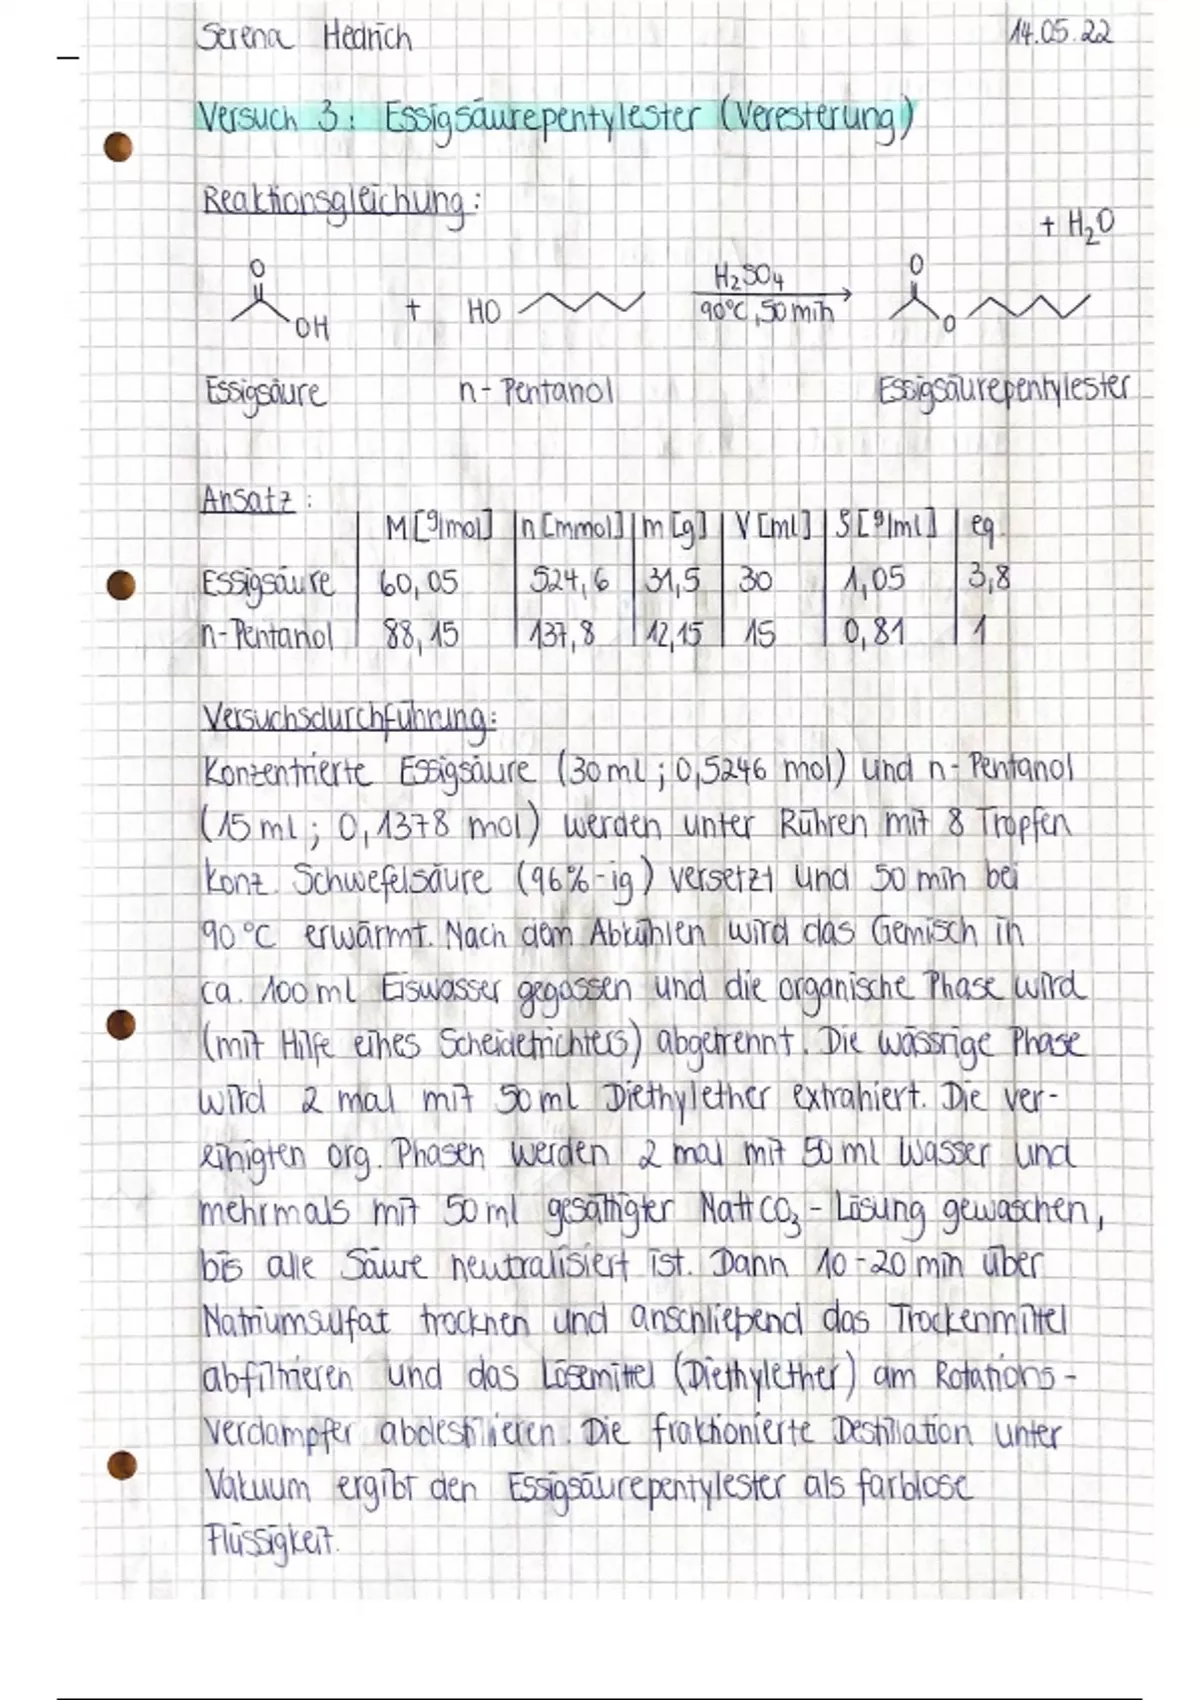 Serena Hedrich 14.05.22
Versuch 3: Essigsäurepentylester (Veresterung)
Reaktionsgleichung:
+ H₂O
O H₂SO₄ O
OH + HO 90°C, 50 min O
Essigsäure n-Pentanol Essigsäurepentylester
Ansatz:
M [g/mol] n [mmol] m [g] V [ml] ρ [g/ml] eq.
Essigsäure 60,05 524,6 31,5 30 1,05 3,8
n-Pentanol 88,15 137,8 12,15 15 0,81 1
Versuchsdurchführung:
Konzentrierte Essigsäure (30 ml; 0,5246 mol) und n-Pentanol
(15 ml; 0,1378 mol) werden unter Rühren mit 8 Tropfen
konz. Schwefelsäure (96%-ig) versetzt und 50 min bei
90°C erwärmt. Nach dem Abkühlen wird das Gemisch in
ca. 100 ml Eiswasser gegossen und die organische Phase wird
(mit Hilfe eines Scheidetrichters) abgetrennt. Die wässrige Phase
wird 2 mal mit 50 ml Diethylether extrahiert. Die ver-
einigten org. Phasen werden 2 mal mit 50 ml Wasser und
mehrmals mit 50 ml gesättigter NaHCO₃-Lösung gewaschen,
bis alle Säure neutralisiert ist. Dann 10-20 min über
Natriumsulfat trocknen und anschließend das Trockenmittel
abfiltrieren und das Lösemittel (Diethylether) am Rotations-
verdampfer abdestillieren. Die fraktionierte Destillation unter
Vakuum ergibt den Essigsäurepentylester als farblose
Flüssigkeit.